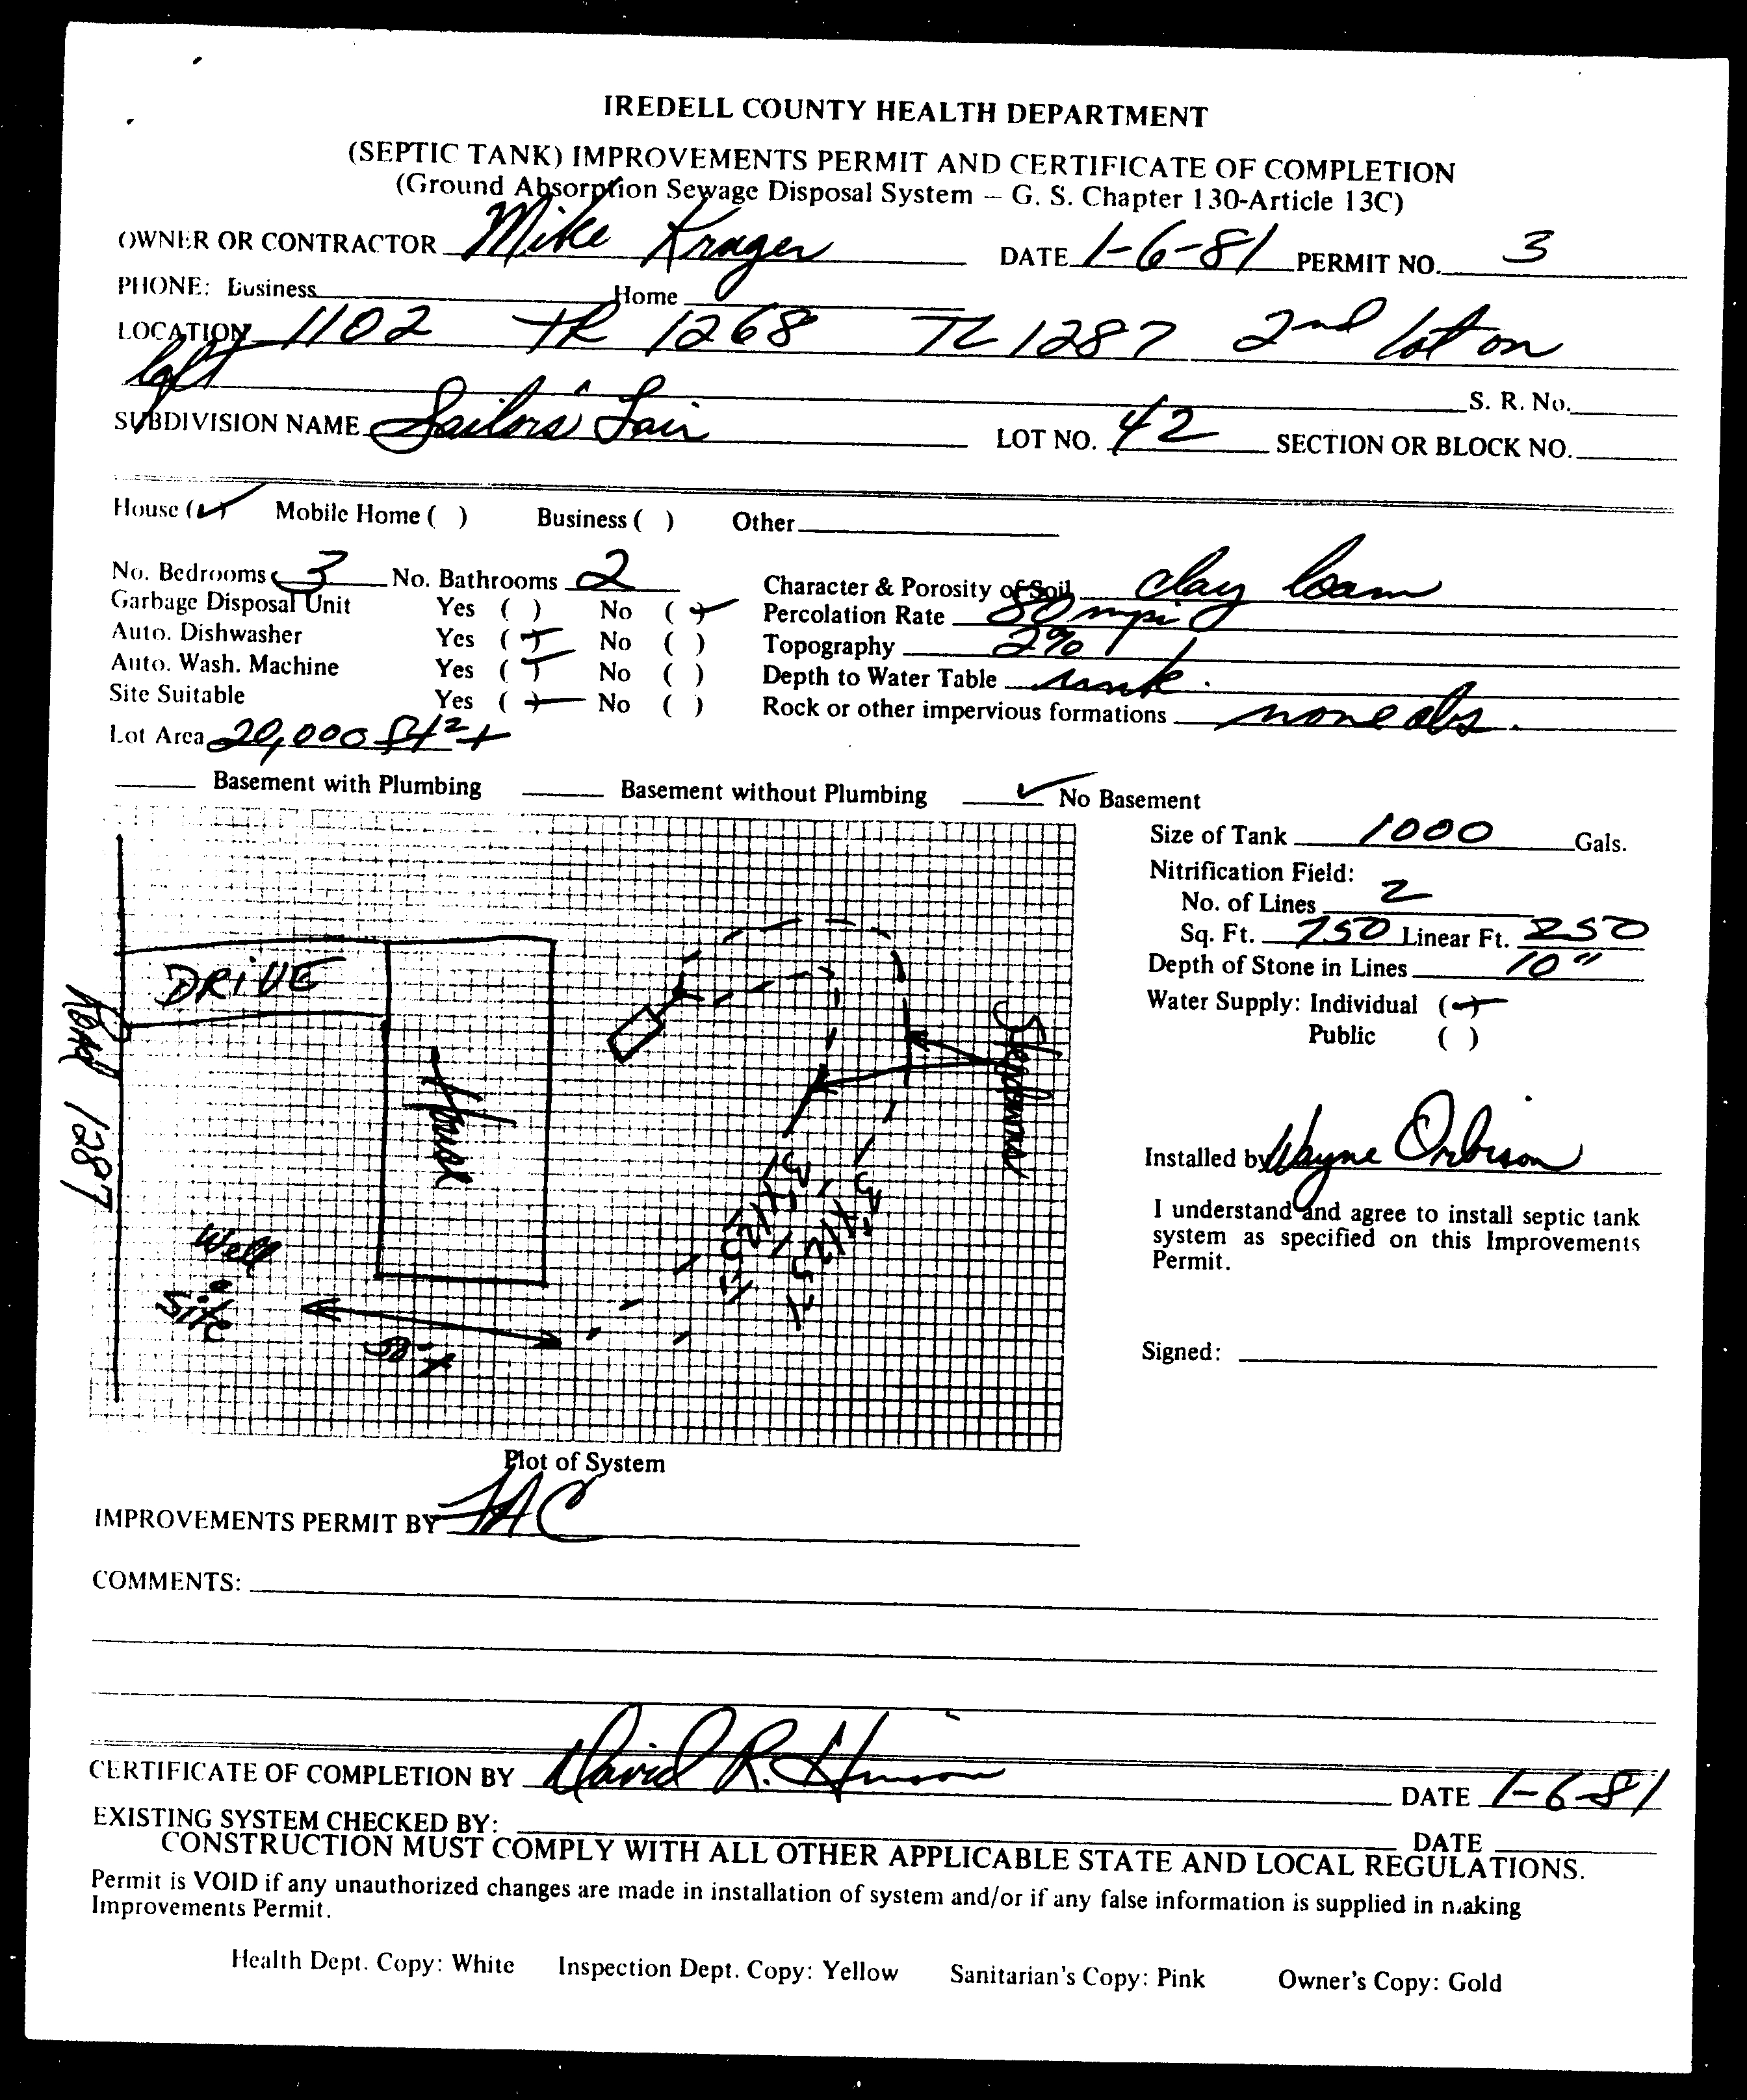 IREDELL COUNTY HEALTH DEPARTMENT
(SEPTIC TANK) IMPROVEMENTS PERMIT AND CERTIFICATE OF COMPLETION
(Ground Absorption Sewage Disposal System – G. S. Chapter 130-Article 13C)
OWNER OR CONTRACTOR Mike Krager DATE 1-6-81 PERMIT NO. 3
PHONE: Business Home
LOCATION 1102 TR 1268 TL 1287 2nd lot on
left S. R. No.
SUBDIVISION NAME Sailors' Lair LOT NO. 42 SECTION OR BLOCK NO.
House (✓) Mobile Home ( ) Business ( ) Other
No. Bedrooms 3 No. Bathrooms 2 Character & Porosity of Soil clay loam
Garbage Disposal Unit Yes ( ) No (✓) Percolation Rate 80 mpi
Auto. Dishwasher Yes (✓) No ( ) Topography 2%
Auto. Wash. Machine Yes (✓) No ( ) Depth to Water Table unk.
Site Suitable Yes (✓) No ( ) Rock or other impervious formations none obs.
Lot Area 20,000 ft²+
Basement with Plumbing Basement without Plumbing ✓ No Basement
Size of Tank 1000 Gals.
Nitrification Field:
No. of Lines 2
Sq. Ft. 750 Linear Ft. 250
Depth of Stone in Lines 10"
Water Supply: Individual (✓)
Public ( )
DRIVE
Road 1287
House
Stepdowns
3'x125'
3'x125'
Well
Site
Installed by Wayne Orbison
I understand and agree to install septic tank
system as specified on this Improvements
Permit.
Signed:
Plot of System
IMPROVEMENTS PERMIT BY
COMMENTS:
CERTIFICATE OF COMPLETION BY David R. Hinson DATE 1-6-81
EXISTING SYSTEM CHECKED BY: DATE
CONSTRUCTION MUST COMPLY WITH ALL OTHER APPLICABLE STATE AND LOCAL REGULATIONS.
Permit is VOID if any unauthorized changes are made in installation of system and/or if any false information is supplied in making
Improvements Permit.
Health Dept. Copy: White Inspection Dept. Copy: Yellow Sanitarian's Copy: Pink Owner's Copy: Gold